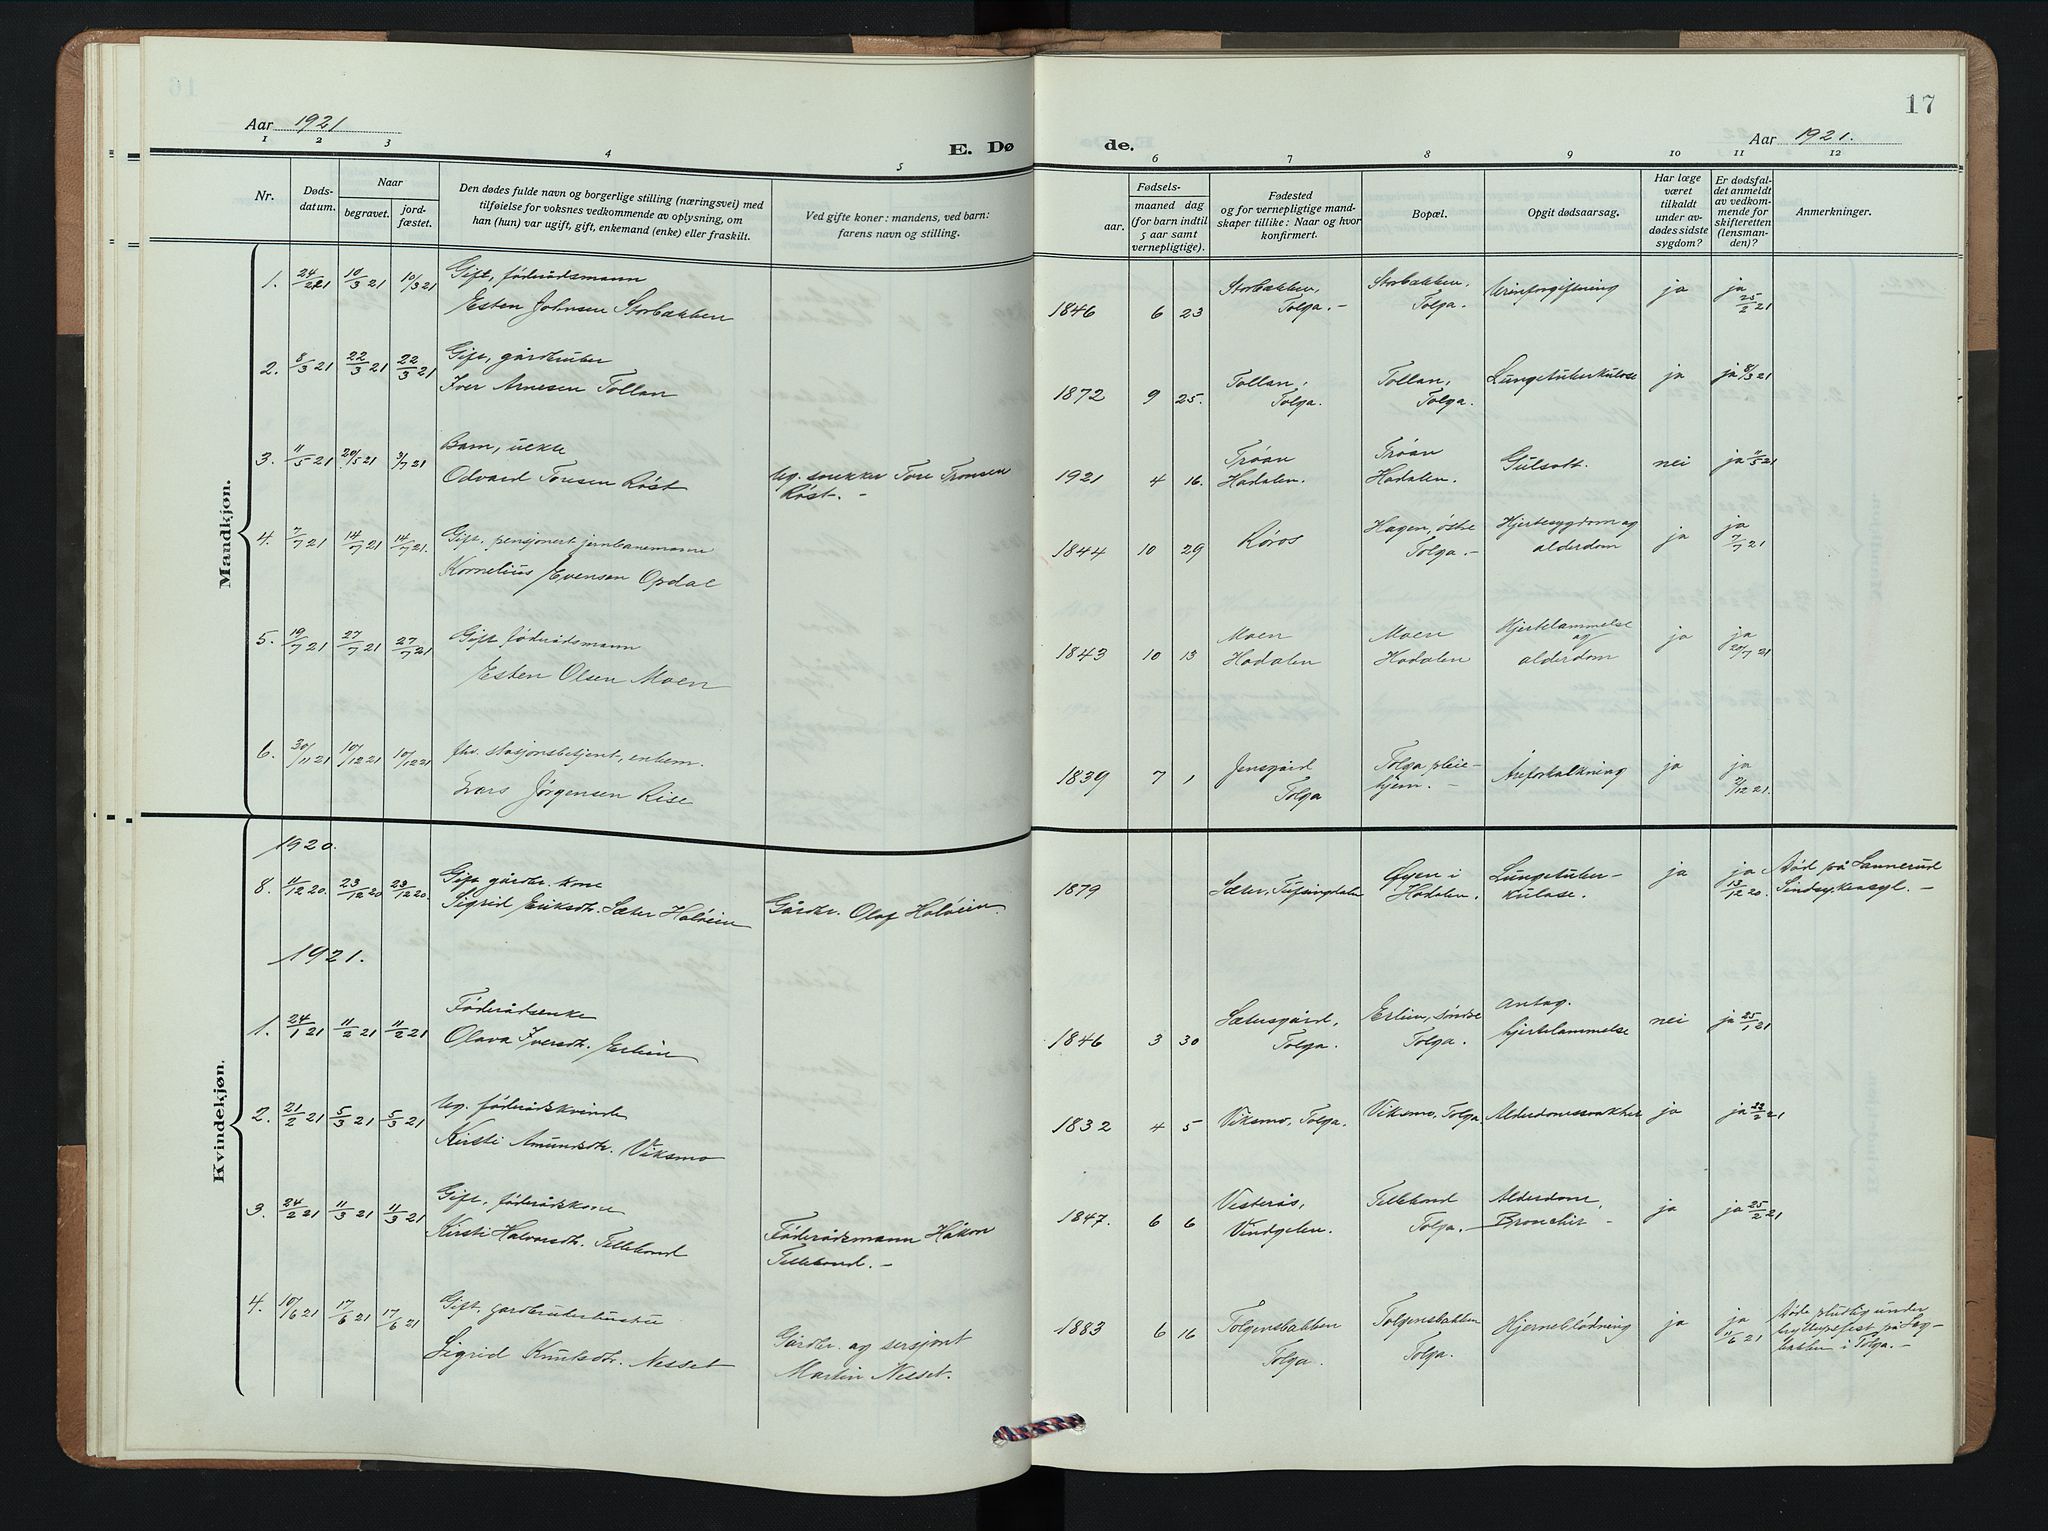 Aar 1921
E. Dø
1 2 3 4 5
Nr.
Døds-
datum.
Naar
begravet.
jord-
fæstet.
Den dødes fulde navn og borgerlige stilling (næringsvei) med
tilføielse for voksnes vedkommende av oplysning, om
han (hun) var ugift, gift, enkemand (enke) eller fraskilt.
Ved gifte koner: mandens, ved barn:
farens navn og stilling.
Mandkjøn.
1. 24/2 21 10/3 21 10/3 21 Gift, føderådsmann
Esten Johnsen Storbækken
2. 8/3 21 22/3 21 22/3 21 Gift, gårdbruker
Iver Arnesen Tollan
3. 11/5 21 20/5 21 3/7 21 Barn, uekte
Odvard Toresen Røst
Ug. snekker Tore Tronsen
Røst. -
4. 7/7 21 14/7 21 14/7 21. Gift, pensjonert jernbanemann
Kornelius Evensen Opdal
5. 19/7 21 27/7 21 27/7 21 Gift føderådsmann
Esten Olsen Moen
6. 30/11 21 10/12 21 10/12 21 fhv. stasjonsbetjent, enkem.
Lars Jørgensen Rise
Kvindekjøn.
1920.
8. 11/12 20. 23/12 20 23/12 20. Gift gårdbr. kone
Sigrid Eriksdtr. Sæter Haløien
Gårdbr. Olaf Haløien.
1921.
1. 24/1 21 11/2 21 11/2 21 Føderådsenke
Olava Iversdtr. Erlien
2. 21/2 21 5/3 21 5/3 21 Ug. føderådskvinde
Kirsti Amundsdtr. Viksmo
3. 24/2 21 11/3 21 11/3 21 Gift, føderådskone
Kirsti Halvorsdtr. Tellebond
Føderådsmann Håkon
Tellebond. -
4. 10/6 21 17/6 21 17/6 21 Gift, gardbrukerhustru
Sigrid Knutsdtr. Nesset
Gårdbr. og sersjant
Martin Nesset.
17
de.
Aar 1921.
6 7 8 9 10 11 12
Fødsels-
aar.
maaned dag
(for barn indtil
5 aar samt
vernepligtige).
Fødested
og for vernepligtige mand-
skaper tillike: Naar og hvor
konfirmert.
Bopæl.
Opgit dødsaarsag.
Har læge
været
tilkaldt
under av-
dødes sidste
sygdom?
Er dødsfal-
det anmeldt
av vedkom-
mende for
skifteretten
(lensman-
den)?
Anmerkninger.
1846 6 23 Storbækken,
Tolga. -
Storbækken,
Tolga.
Urinforgiftning ja ja
25/2 21
1872 9 25. Tollan,
Tolga.
Tollan,
Tolga.
Lungetuberkulose ja ja 8/3 21
1921 4 16. Trøan
Hodalen.
Trøan
Hodalen.
Gulsott. nei ja 11/5 21
1844 10 29 Røros
Hagen, østre
Tolga. -
Hjertesygdom og
alderdom
ja ja
7/7 21
1843 10 13 Moen
Hodalen
Moen
Hodalen
Hjertelammelse
og
alderdom
ja ja
20/7 21
1839 7 1 Jensgård
Tolga
Tolga pleie-
hjem. -
Åreforkalkning ja ja
2/12 21.
1879 Sæter, Tufsingdalen
Øyen i
Hodalen.
Lungetuber-
kulose.
ja ja
13/12 20.
Død på Sannerud
Sindssykeasyl. -
1846 3 30 Sætersgård,
Tolga.
Erlien, søndre
Tolga.
Antag.
hjertelammelse
nei ja 25/1 21
1832 4 5 Viksmo, Tolga. Viksmo, Tolga. Alderdomssvakhet ja ja 22/2 21
1847. 6 6 Vesterås,
Vindgelen.
Tellebond
Tolga. -
Alderdom,
Bronchit -
ja ja 25/2 21
1883 6 16 Tolgensbakken
Tolga.
Tolgensbakken
Tolga.
Hjerneblødning ja ja
11/6 21
Døde pludlig under
bryllupsfest på Lag-
bakken i Tolga. -